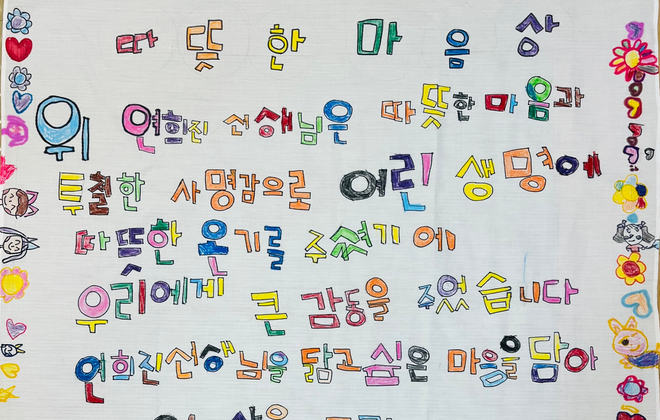 따뜻한 마음상
위 연희진 선생님은 따뜻한 마음과
투철한 사명감으로 어린 생명에
따뜻한 온기를 주셨기에
우리에게 큰 감동을 주었습니다
연희진선생님을 닮고 싶은 마음을 담아